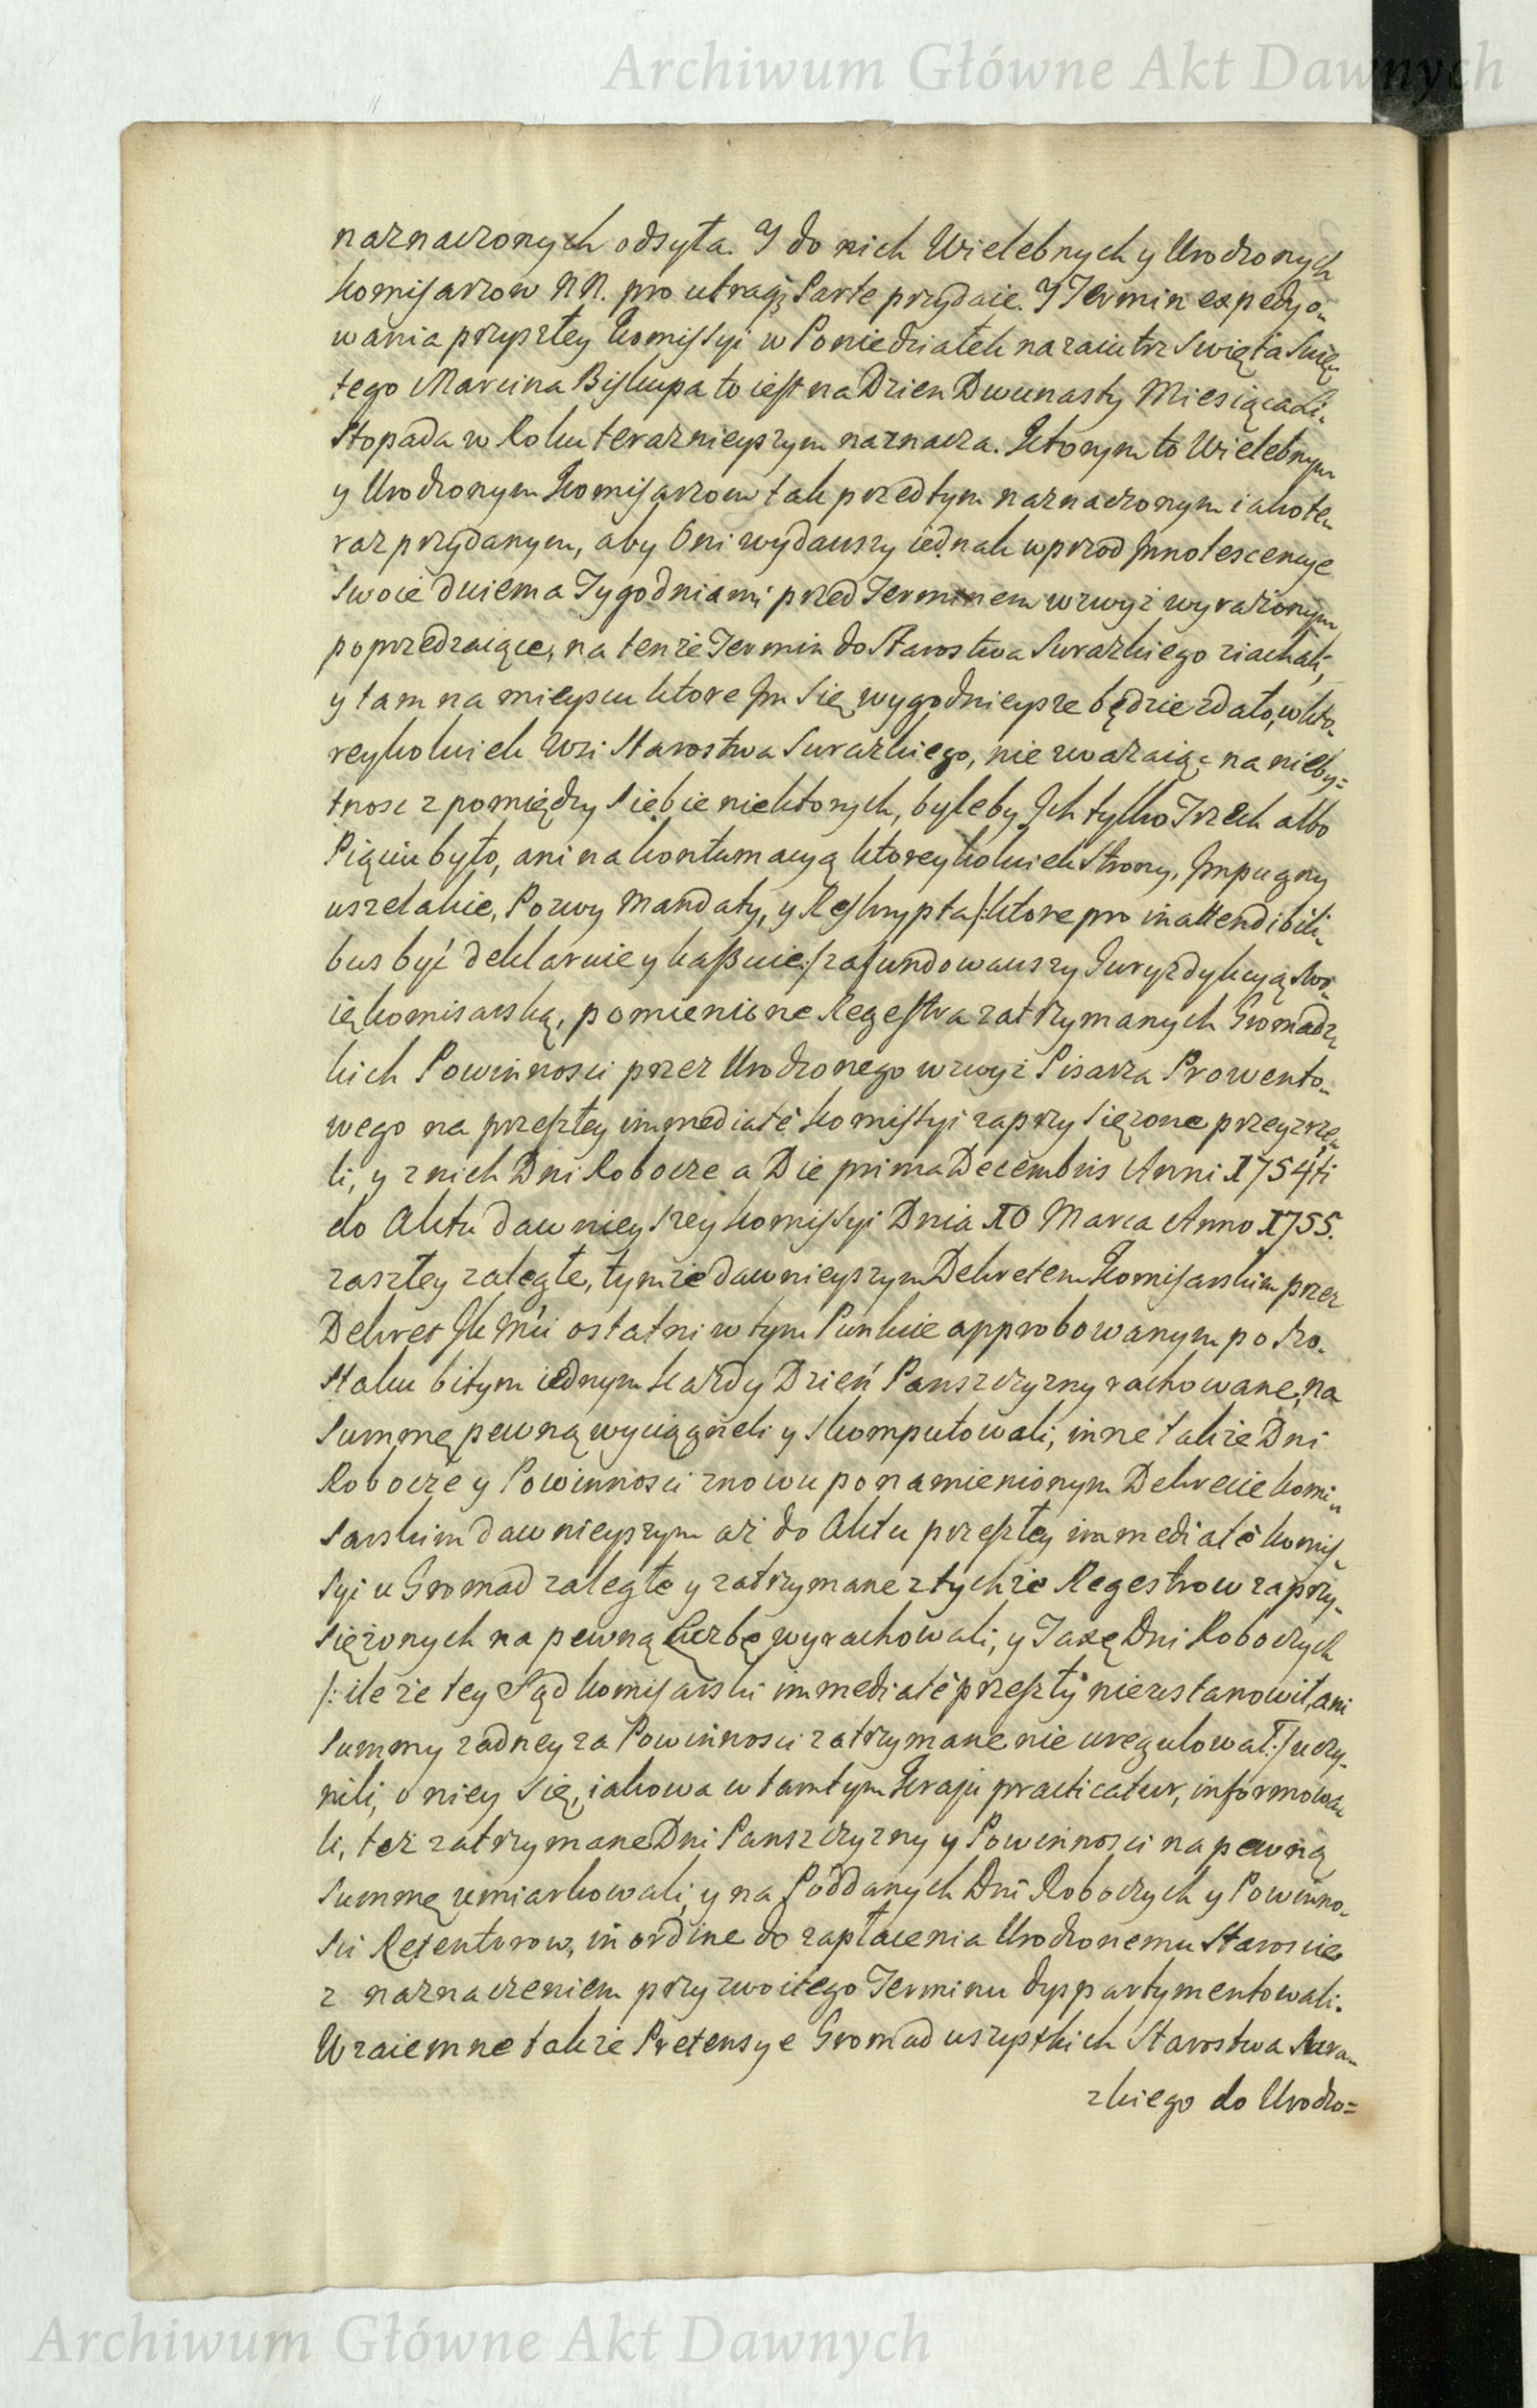 Archiwum Główne Akt Dawnych
naznaczonych odsyła. Y do nich Wielebnych y Urodzonych
Komisarzow NN. pro utraq; Parte przydaie. Y Termin expedyo-
wania przyszłey Kommissyi w Poniedziałek nazaiutrz Swięta Swię-
tego Marcina Biskupa to iest na Dzien Dwunasty Miesiąca Li-
stopada w Roku teraznieyszym naznacza. Ktorym to Wielebnym
y Urodzonym Komisarzom tak przedtym naznaczonym iako te-
raz przydanym, aby Oni wydawszy iednak wprzod Innotescencye
swoie dwiema Tygodniami przed Terminem wzwyż wyrażonym
poprzedzaiące, na tenże Termin do Starostwa Surazkiego ziachali,
y tam na mieyscu ktore Im się wygodnieysze będzie zdało, w kto-
reykolwiek Wsi Starostwa Surazkiego, nie zważaiąc na nieby=
tnosc z pomiędzy siebie niektorych, byleby Ich tylko Trzech albo
Piąciu było, ani na kontumacyą ktoreykolwiek Strony, Impugny
wszelakie, Pozwy Mandaty, y Reskrypta /:ktore pro inattendibili-
bus być deklaruie y kassuie:/ zafundowawszy Juryzdykcyą swo-
ię komisarską, pomienione Regestra zatrzymanych Gromadz-
kich Powinnosci przez Urodzonego wzwyż Pisarza Prowento-
wego na przeszłey immediatè Komissyi zaprzysiężone przeyrze-
li, y z nich Dni Robocze a Die prima Decembris Anni 1754ti
do Aktu dawnieyszey Komissyi Dnia 10 Marca Anno 1755.
zaszłey zaległe, tymże dawnieyszym Dekretem Komisarskim przez
Dekret JK Mci ostatni w tym Punkcie approbowanym po Szo-
staku bitym iednym każdy Dzień Panszczyzny rachowane, na
Summę pewną wyciągneli y skomputowali, inne także Dni
Robocze y Powinnosci znowu po namienionym Dekrecie Komi-
sarskim dawnieyszym aż do Aktu przeszłey immediatè Komis-
syi u Gromad zaległe y zatrzymane z tychże Regestrow zaprzy-
siężonych na pewną Liczbę wyrachowali, y Taxę Dni Roboczych
/: ile że tey Sąd Komisarski immediatè przeszły nie zustanowił, ani
Summy żadney za Powinnosci zatrzymane nie uregulował:/ uczy-
nili, o niey się, iakowa w tamtym Kraju practicatur, informowa-
li, też zatrzymane Dni Panszczyzny y Powinnosci na pewną
Summę umiarkowali, y na Poddanych Dni Roboczych y Powinno-
sci Retentorow, in ordine do zapłacenia Urodzonemu Staroscie
z naznaczeniem przyzwoitego Terminu dyspartymentowali.
Wzaiemne także Pretensye Gromad wszystkich Starostwa Sura-
zkiego do Urodzo=
Archiwum Główne Akt Dawnych